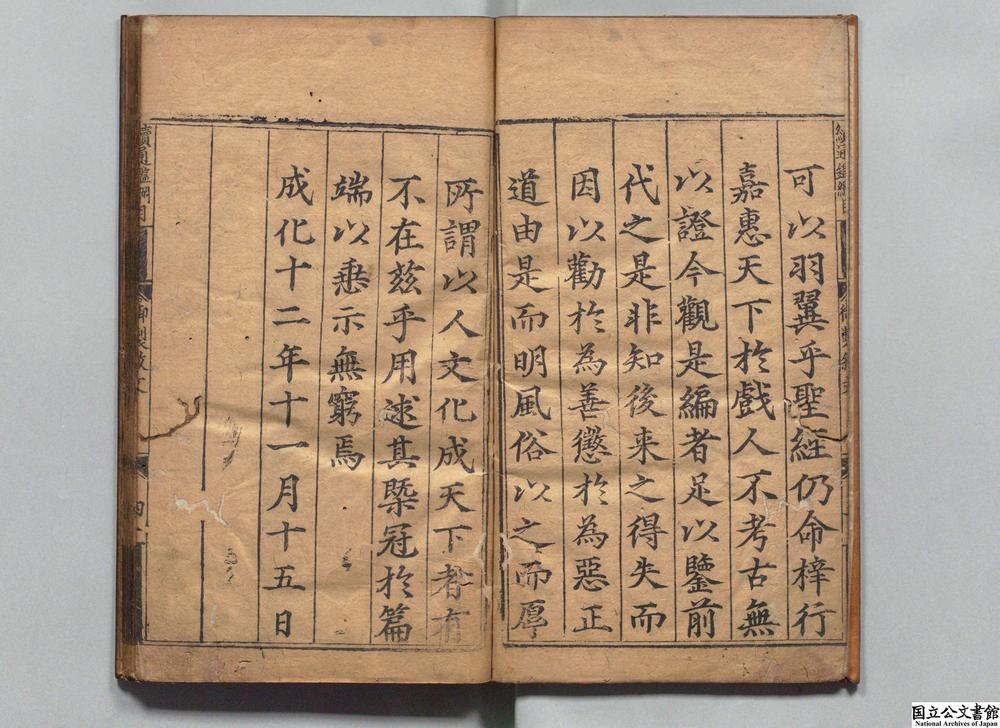 可以羽翼乎聖經仍命梓行
嘉惠天下於戲人不考古無
以證今觀是編者足以鑒前
代之是非知後来之得失而
因以勸於為善懲於為惡正
道由是而明風俗以之而厚
所謂以人文化成天下者有
不在茲乎用述其槩冠於篇
端以垂示無窮焉
成化十二年十一月十五日
續通鑑綱目
御製敘文
四
国立公文書館
National Archives of Japan